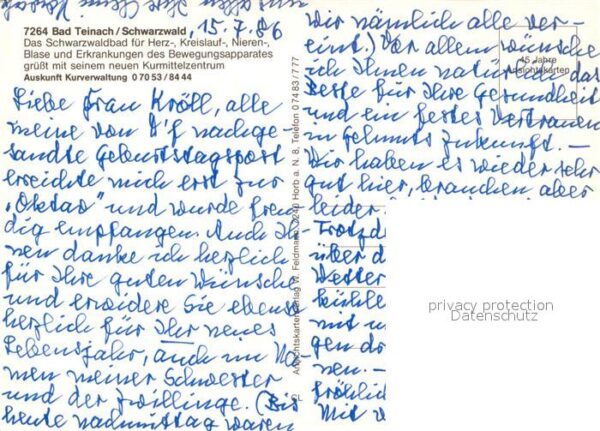 15.7.86
7264 Bad Teinach / Schwarzwald
Das Schwarzwaldbad für Herz-, Kreislauf-, Nieren-,
Blase und Erkrankungen des Bewegungsapparates
grüßt mit seinem neuen Kurmittelzentrum
Auskunft Kurverwaltung 0 70 53 / 84 44
Liebe Frau Kröll, alle
meine von D'f nachge-
sandte Geburtstagspost
erreichte mich erst zur
"Oktav" und wurde freu-
dig empfangen. Auch Ih-
nen danke ich herzlich
für Ihre guten Wünsche
und erwidere Sie ebenso
herzlich für Ihr neues
Lebensjahr, auch im Na-
men meiner Schwester
und der Zwillinge. (Bis
heute nachmittag waren
Ansichtskartenverlag W. Feldmann, 7240 Horb a. N. 8, Telefon 0 74 83 / 7 77
wir nämlich alle ver-
eint.) Vor allem wünsche
ich Ihnen natürlich das
Beste für Ihre Gesundheit
und ein festes Vertrauen
in Zukunft. –
Wir haben es wieder sehr
gut hier, brauchen aber
leider
Trotzd
über d
Wetter
kühle
mit u
gen do
nen. –
fröhlich
Mit v
45 Jahre
Ansichtskarten
privacy protection
Datenschutz